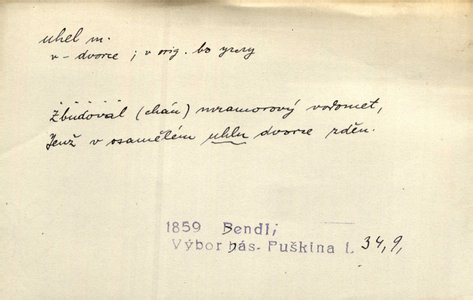 uhel m.
v – dvorce ; v orig. bo
Zbudoval (chán) mramorový vodomet,
Jenž v osamělém uhlu dvorce zděn.
1859 Bendl,
Výbor bás. Puškina 1. 34, 9,